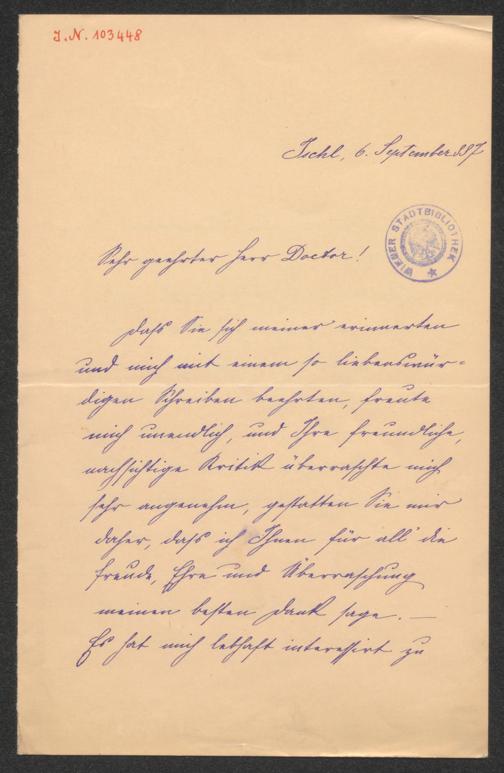 J. N. 103448
Ischl, 6. September 887
WIENER STADTBIBLIOTHEK
Sehr geehrter Herr Doctor!
Daſs Sie sich meiner erinnerten
und mich mit einem so liebenswür=
digen Schreiben beehrten, freute
mich unendlich, und Ihre freundliche,
nachsichtige Kritik überraschte mich
sehr angenehm, gestatten Sie mir
daher, daſs ich Ihnen für all' die
Freude, Ehre und Überraschung
meinen besten Dank sage. —
Es hat mich lebhaft interessirt zu